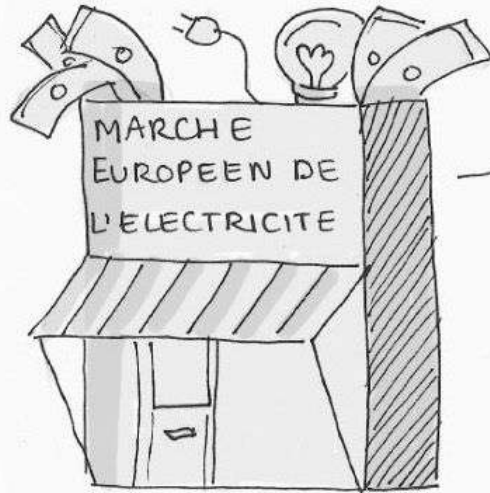 MARCHE
EUROPEEN DE
L'ELECTRICITE